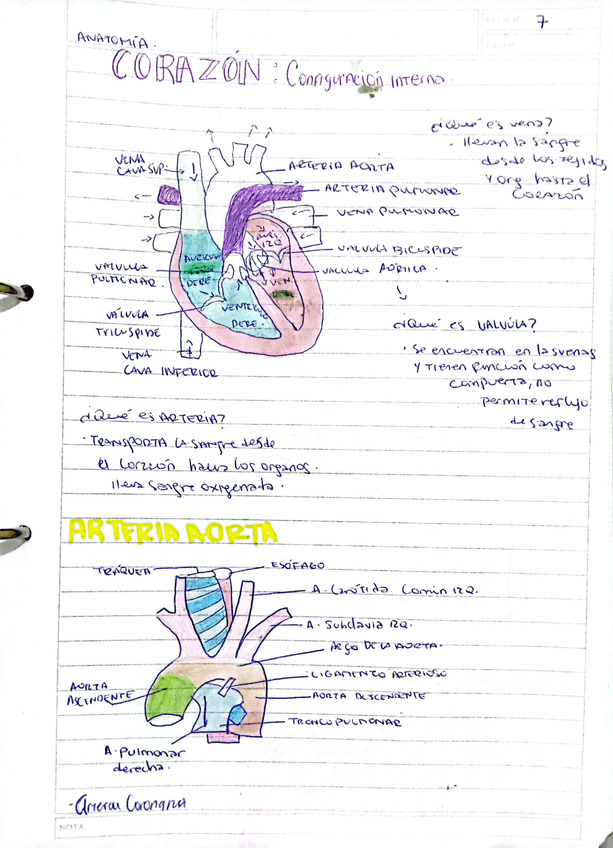 7
ANATOMÍA.
CORAZÓN: Configuración Interna.
¿Qué es vena?
· llevan la sangre
desde los tejidos
y org. hasta el
CORAZÓN
VENA
CAVA SUP.
ARTERIA AORTA
ARTERIA PULMONAR
VENA PULMONAR
VALVULA BICUSPIDE
VALVULA AÓRTICA.
AURI.
IZQ
AURICU
DERE.
VEN
VENTRICULO
DERE.
VALVULA
PULMONAR.
VÁLVULA
TRICUSPIDE
VENA
CAVA INFERIOR
¿Qué es VALVÚLA?
· Se encuentran en las venas
y tienen función como
compuerta, no
permite reflujo
de sangre
¿Qué es ARTERIA?
· TRANSPORTA LA SANGRE desde
el corazón hacia los organos.
lleva sangre oxigenada.
ARTERIA AORTA
TRÁQUEA
ESÓFAGO
A. Carótida Comín IZQ.
A. Subclavia IZQ.
Arco DE LA AORTA.
LIGAMENTO ARTERIOSO
AORTA DESCENIENTE
TRONCO PULMONAR
AORTA
ASCENDENTE
A. pulmonar
derecha.
- Arteria Coronaria
NOTA